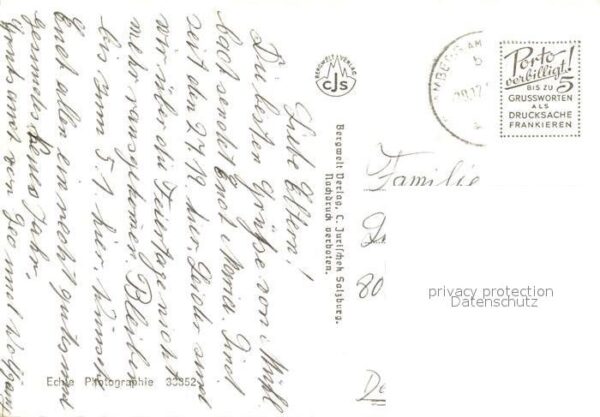 Liebe Eltern!
Die besten Grüße von Mühl
bach sendet Euch Maria. Sind
seit den 27.12. hier. Leider sind
wir über die Feiertage nicht
mehr rausgekommen. Bleiben
bis zum 5.1 hier. Wünsche
Euch allen ein noch gutes und
gesundes Neues Jahr.
Gruß auch von Wolfgang
BERGWELT VERLAG
CJS
Bergwelt Verlag, C. Jurischek Salzburg.
Nachdruck verboten.
Echte Photographie 33352
AM
5
Porto
verbilligt!
BIS ZU 5
GRUSSWORTEN
ALS
DRUCKSACHE
FRANKIEREN
Familie
80
privacy protection
Datenschutz